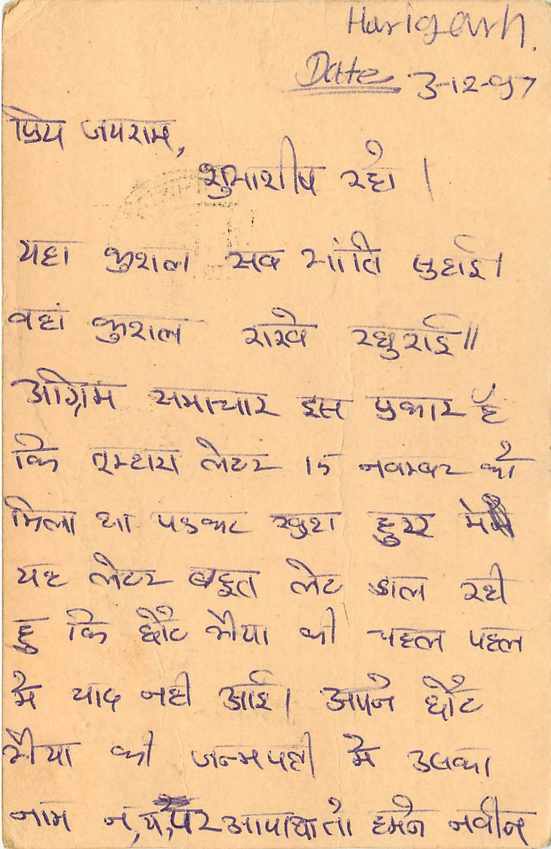 Harigarh.
Date 3-12-97
प्रिय जयराम,
शुभाशीष रहो ।
यहा कुशल सब भांति सुहाई।
वहां कुशल राखे रघुराई॥
अग्रिम समाचार इस प्रकार है
कि तुम्हारा लेटर 15 नवम्बर को
मिला था पडकर खुश हुए मैं
यह लेटर बहुत लेट डाल रही
हु कि छोटे भैया की चहल पहल
मे याद नही आई। अपने छोटे
भैया की जन्मपत्री मे उसका
नाम न, य, पर आया था तो हमने नवीन